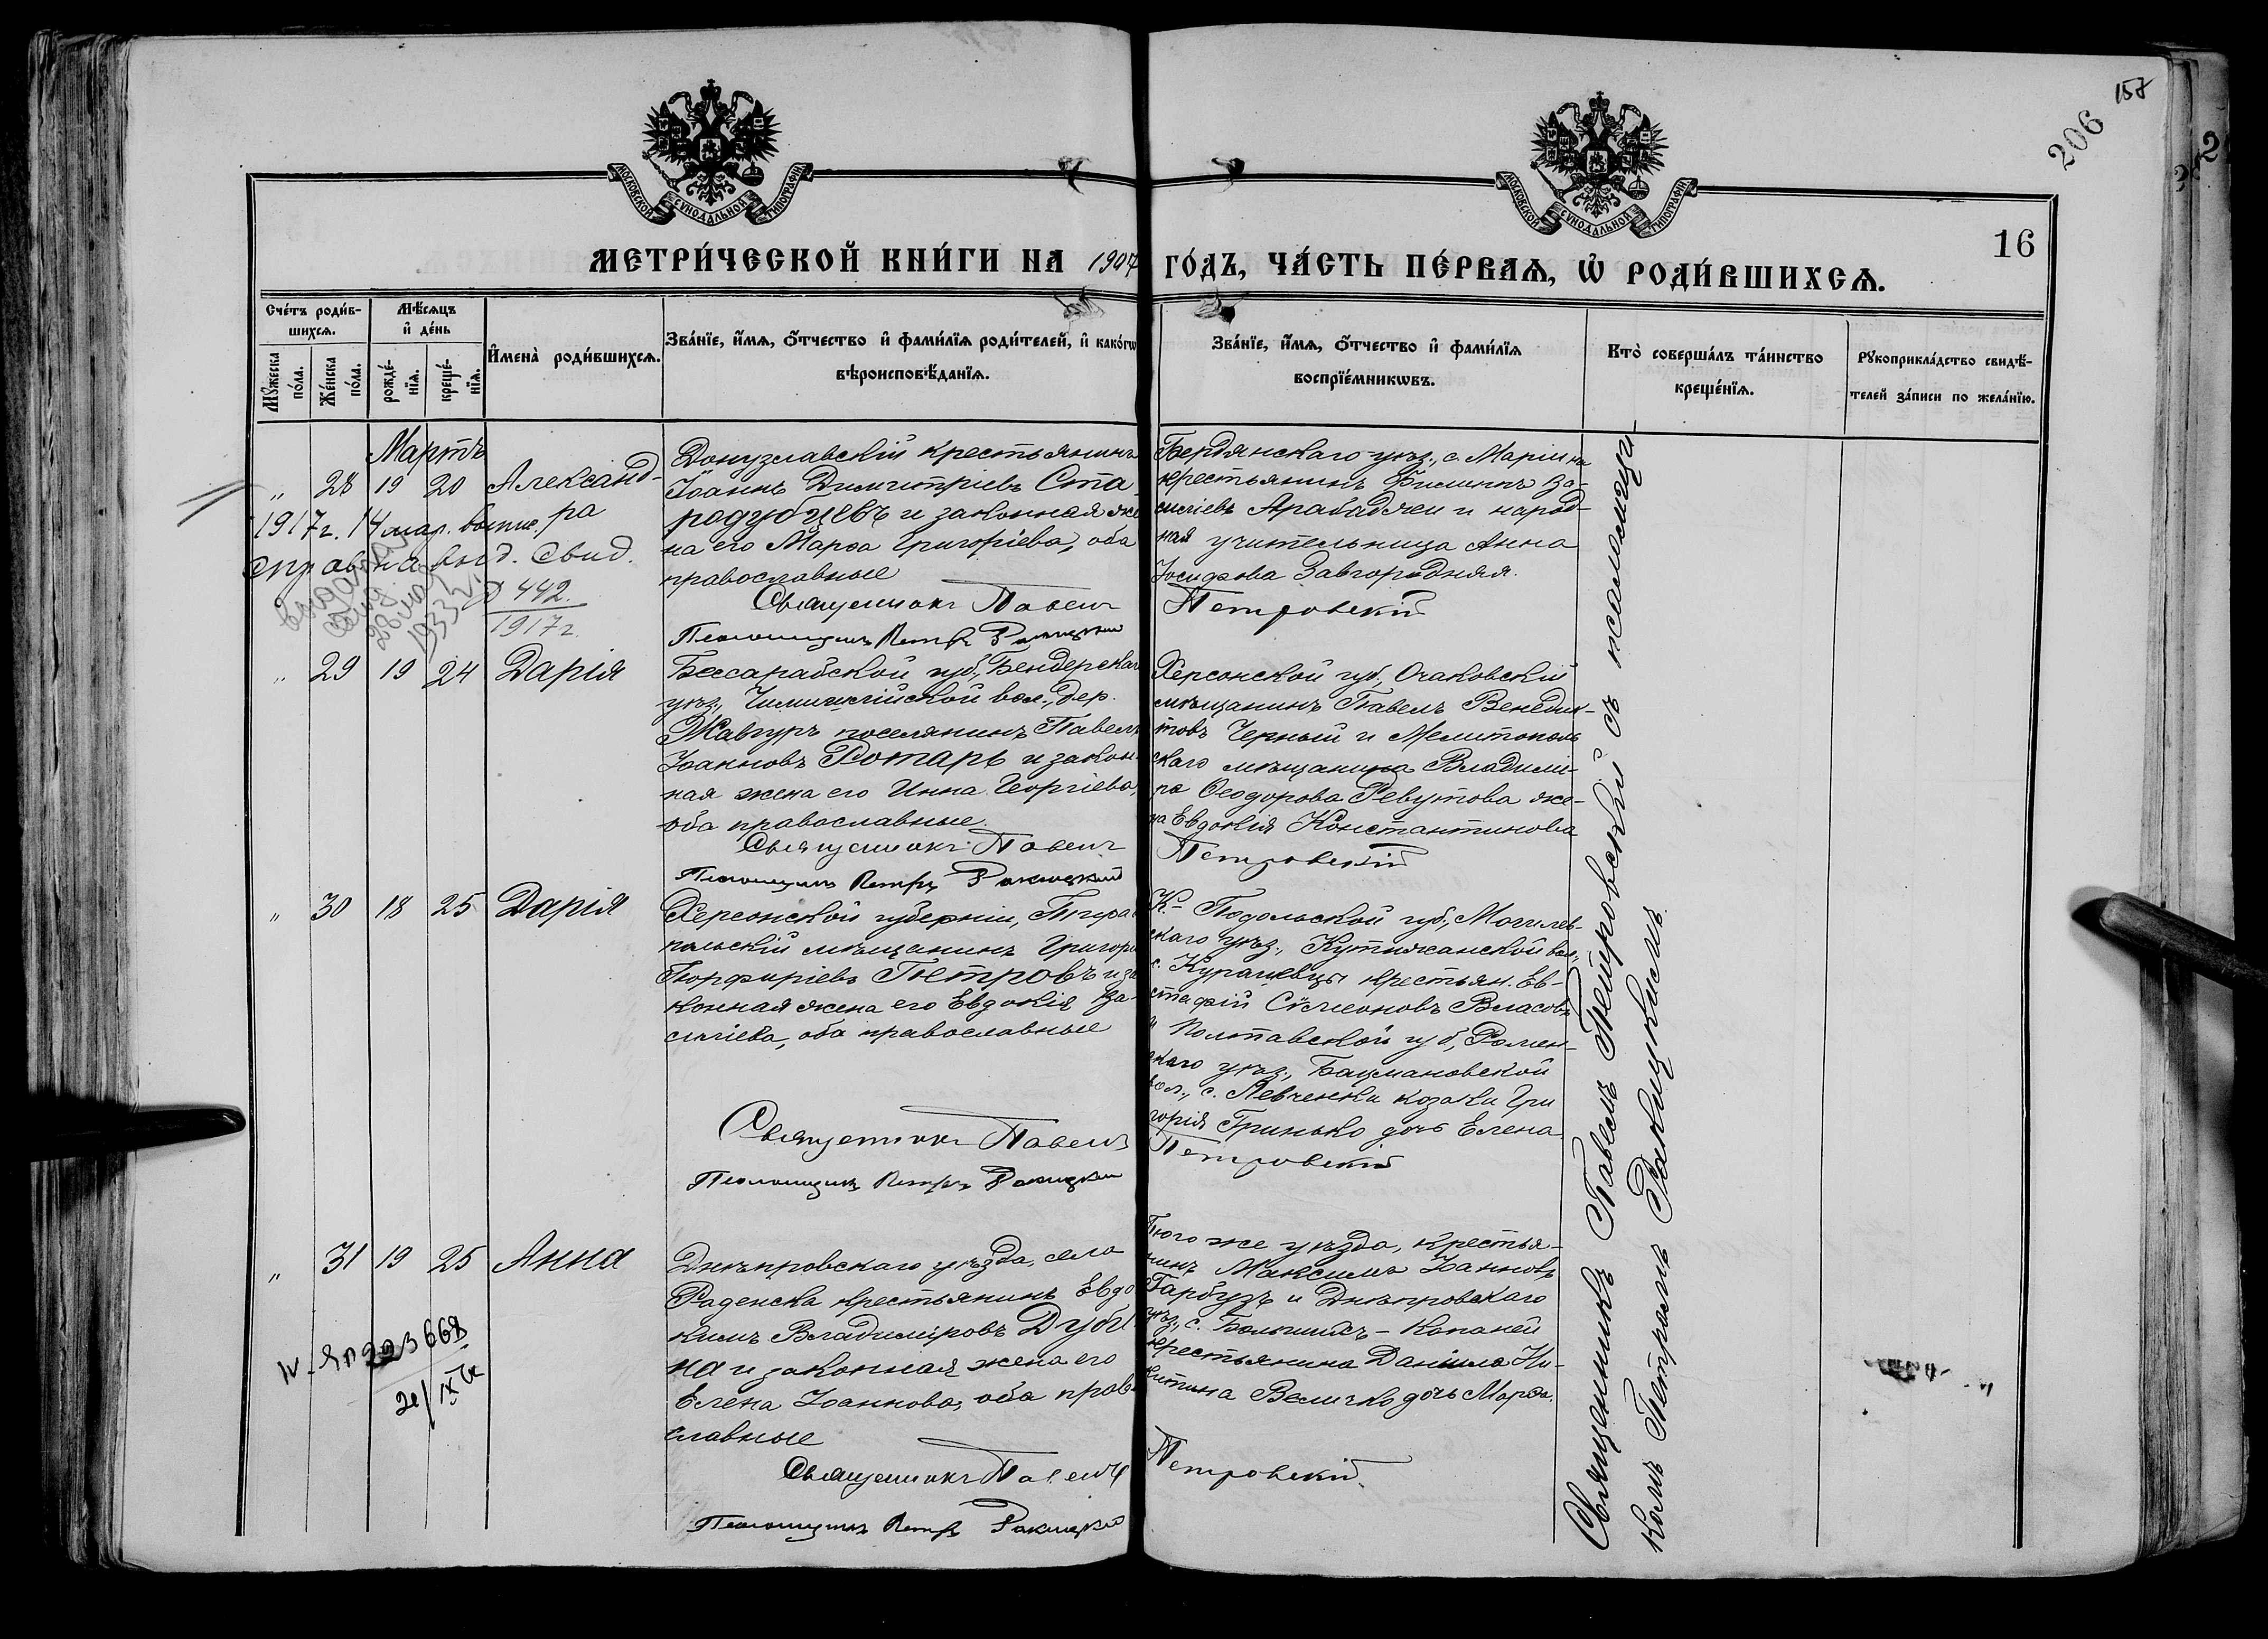 157
206
МОСКОВСКОЙ СѴНОДАЛЬНОЙ ТИПОГРАФІИ
МОСКОВСКОЙ СѴНОДАЛЬНОЙ ТИПОГРАФІИ
16
МЕТРИ́ЧЕСКОЙ КНИ́ГИ НА 1907 ГО́ДЪ, ЧА́СТЬ ПЕ́РВАѦ, Ѡ҆ РОДИ́ВШИХСѦ.
Сче́тъ роди́в-
шихсѧ.
Мꙋ́жеска по́ла.
Же́нска по́ла.
Мѣ́сѧцъ
и҆ де́нь
рожде́-
нїѧ.
креще́-
нїѧ.
И҆мена̀ роди́вшихсѧ.
Зва́нїе, и҆́мѧ, ѻ҆́тчество и҆ фами́лїѧ роди́телей, и҆ како́гѡ
вѣроисповѣ́данїѧ.
Зва́нїе, и҆́мѧ, ѻ҆́тчество и҆ фами́лїѧ
воспрїе́мникѡвъ.
Кто̀ соверша́лъ та́инство
креще́нїѧ.
Рꙋкоприкла́дство свидѣ́-
телей за́писи по жела́нїю.
Мартъ
„ 28 19 20 Александ-
ра
1917 г. 14 мар.
справка выд. свид.
№ 442.
1917 г.
выдано
свид
28 мая
1933 г.
Донузлавскій крестьянинъ
Іоаннъ Димитріевъ Ста-
родубцевъ и законная же
на его Марѳа Григорьева, оба
православные
Священникъ Павелъ
Псаломщикъ Петръ Ракицкій
Бердянскаго уѣз., с. Маріина
крестьянинъ Филиппъ Ва-
силіевъ Арабаджи и народ-
ная учительница Анна
Іосифова Завгородняя.
Петровскій
„ 29 19 24 Дарія
Бессарабской губ., Бендерскаго
уѣз., Чимишлійской вол., дер.
Жавгуръ поселянинъ Павелъ
Іоанновъ Ротарь и закон-
ная жена его Инна Георгіева,
оба православные.
Священникъ Павелъ
Псаломщикъ Петръ Ракицкій
Херсонской губ., Очаковскій
мѣщанинъ Павелъ Венедик-
товъ Черный и Мелитополь
скаго мѣщанина Владимі-
ра Ѳеодорова Ревутова же-
на Евдокія Константинова
Петровскій
„ 30 18 25 Дарія
Херсонской губерніи, Тирас
польскій мѣщанинъ Григорій
Порфиріевъ Петровъ и за
конная жена его Евдокія Ва-
силіева, оба православные
Священникъ Павелъ
Псаломщикъ Петръ Ракицкій
Подольской губ., Могилев-
скаго уѣз., вол.,
с. крестьян. Ев-
стафій Сѵмеоновъ Власовъ
и Полтавской губ., Ромен-
скаго уѣз., Бацмановской
вол., с. Левченки козака Гри
горія Гринько дочь Елена
Петровскій
„ 31 19 25 Анна
IV-ЯП 223668
Днѣпровскаго уѣзда, села
Раденска крестьянинъ Евдо
кимъ Владиміровъ Дуби
на и законная жена его
Елена Іоаннова, оба право
славные
Священникъ Павелъ
Псаломщикъ Петръ Ракицкій
Того же уѣзда, крестья-
нинъ Максимъ Іоанновъ
Гарбузъ и Днѣпровскаго
уѣз., с. Большихъ-Копаней
крестьянина Даніила Ни-
китина Величко дочь Марѳа.
Петровскій.
Священникъ Павелъ Петровскій съ псаломщи-
комъ Петромъ Ракицкимъ.